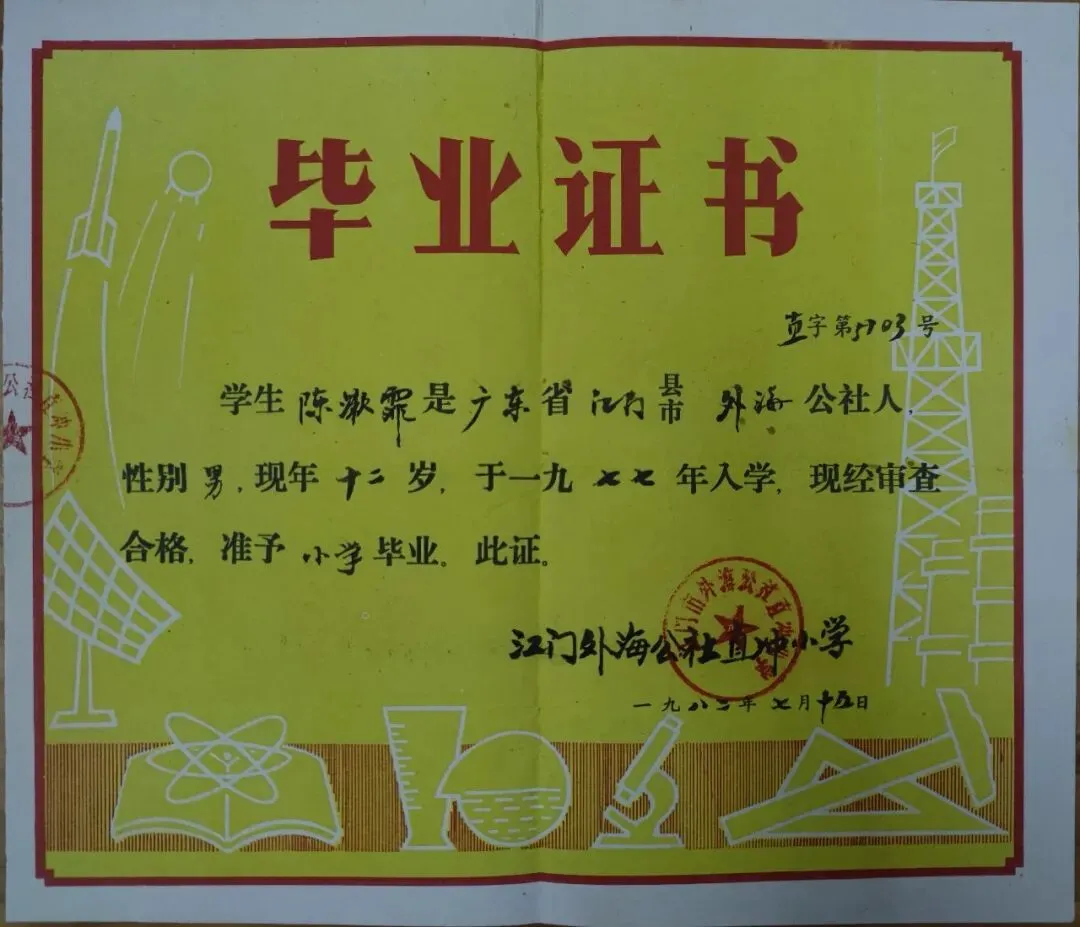 毕业证书
直字第5703号
学生陈潄霏是广东省江门县市外海公社人,
性别男,现年十二岁,于一九七七年入学,现经审查
合格,准予小学毕业。此证。
江门外海公社直冲小学
一九八二年七月十五日